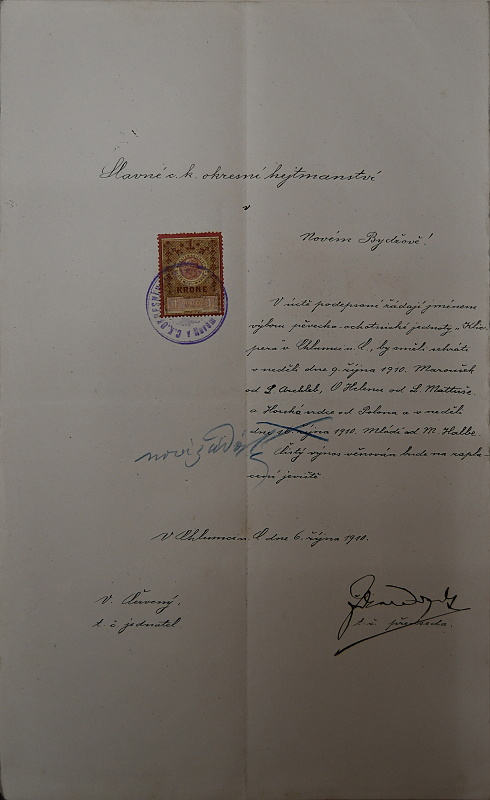 Slavné c. k. okresní hejtmanství
v
Novém Bydžově!
1
KRONE
V úctě podepsaní žádají jménem
výboru pěvecko-ochotnické jednoty „Klic-
pera" v Chlumci n. C., by směli sehráti
v neděli dne 9. října 1910. Maroušek
od L. O Helenu od L.
a Horská od a v neděli
dne 16. října 1910. Mládí od M. Halbe.
Čistý výnos věnován bude na zapla-
cení jeviště.
V Chlumci n. C. dne 6. října 1910.
V. Červený,
t. č. jednatel
t. č. předseda.